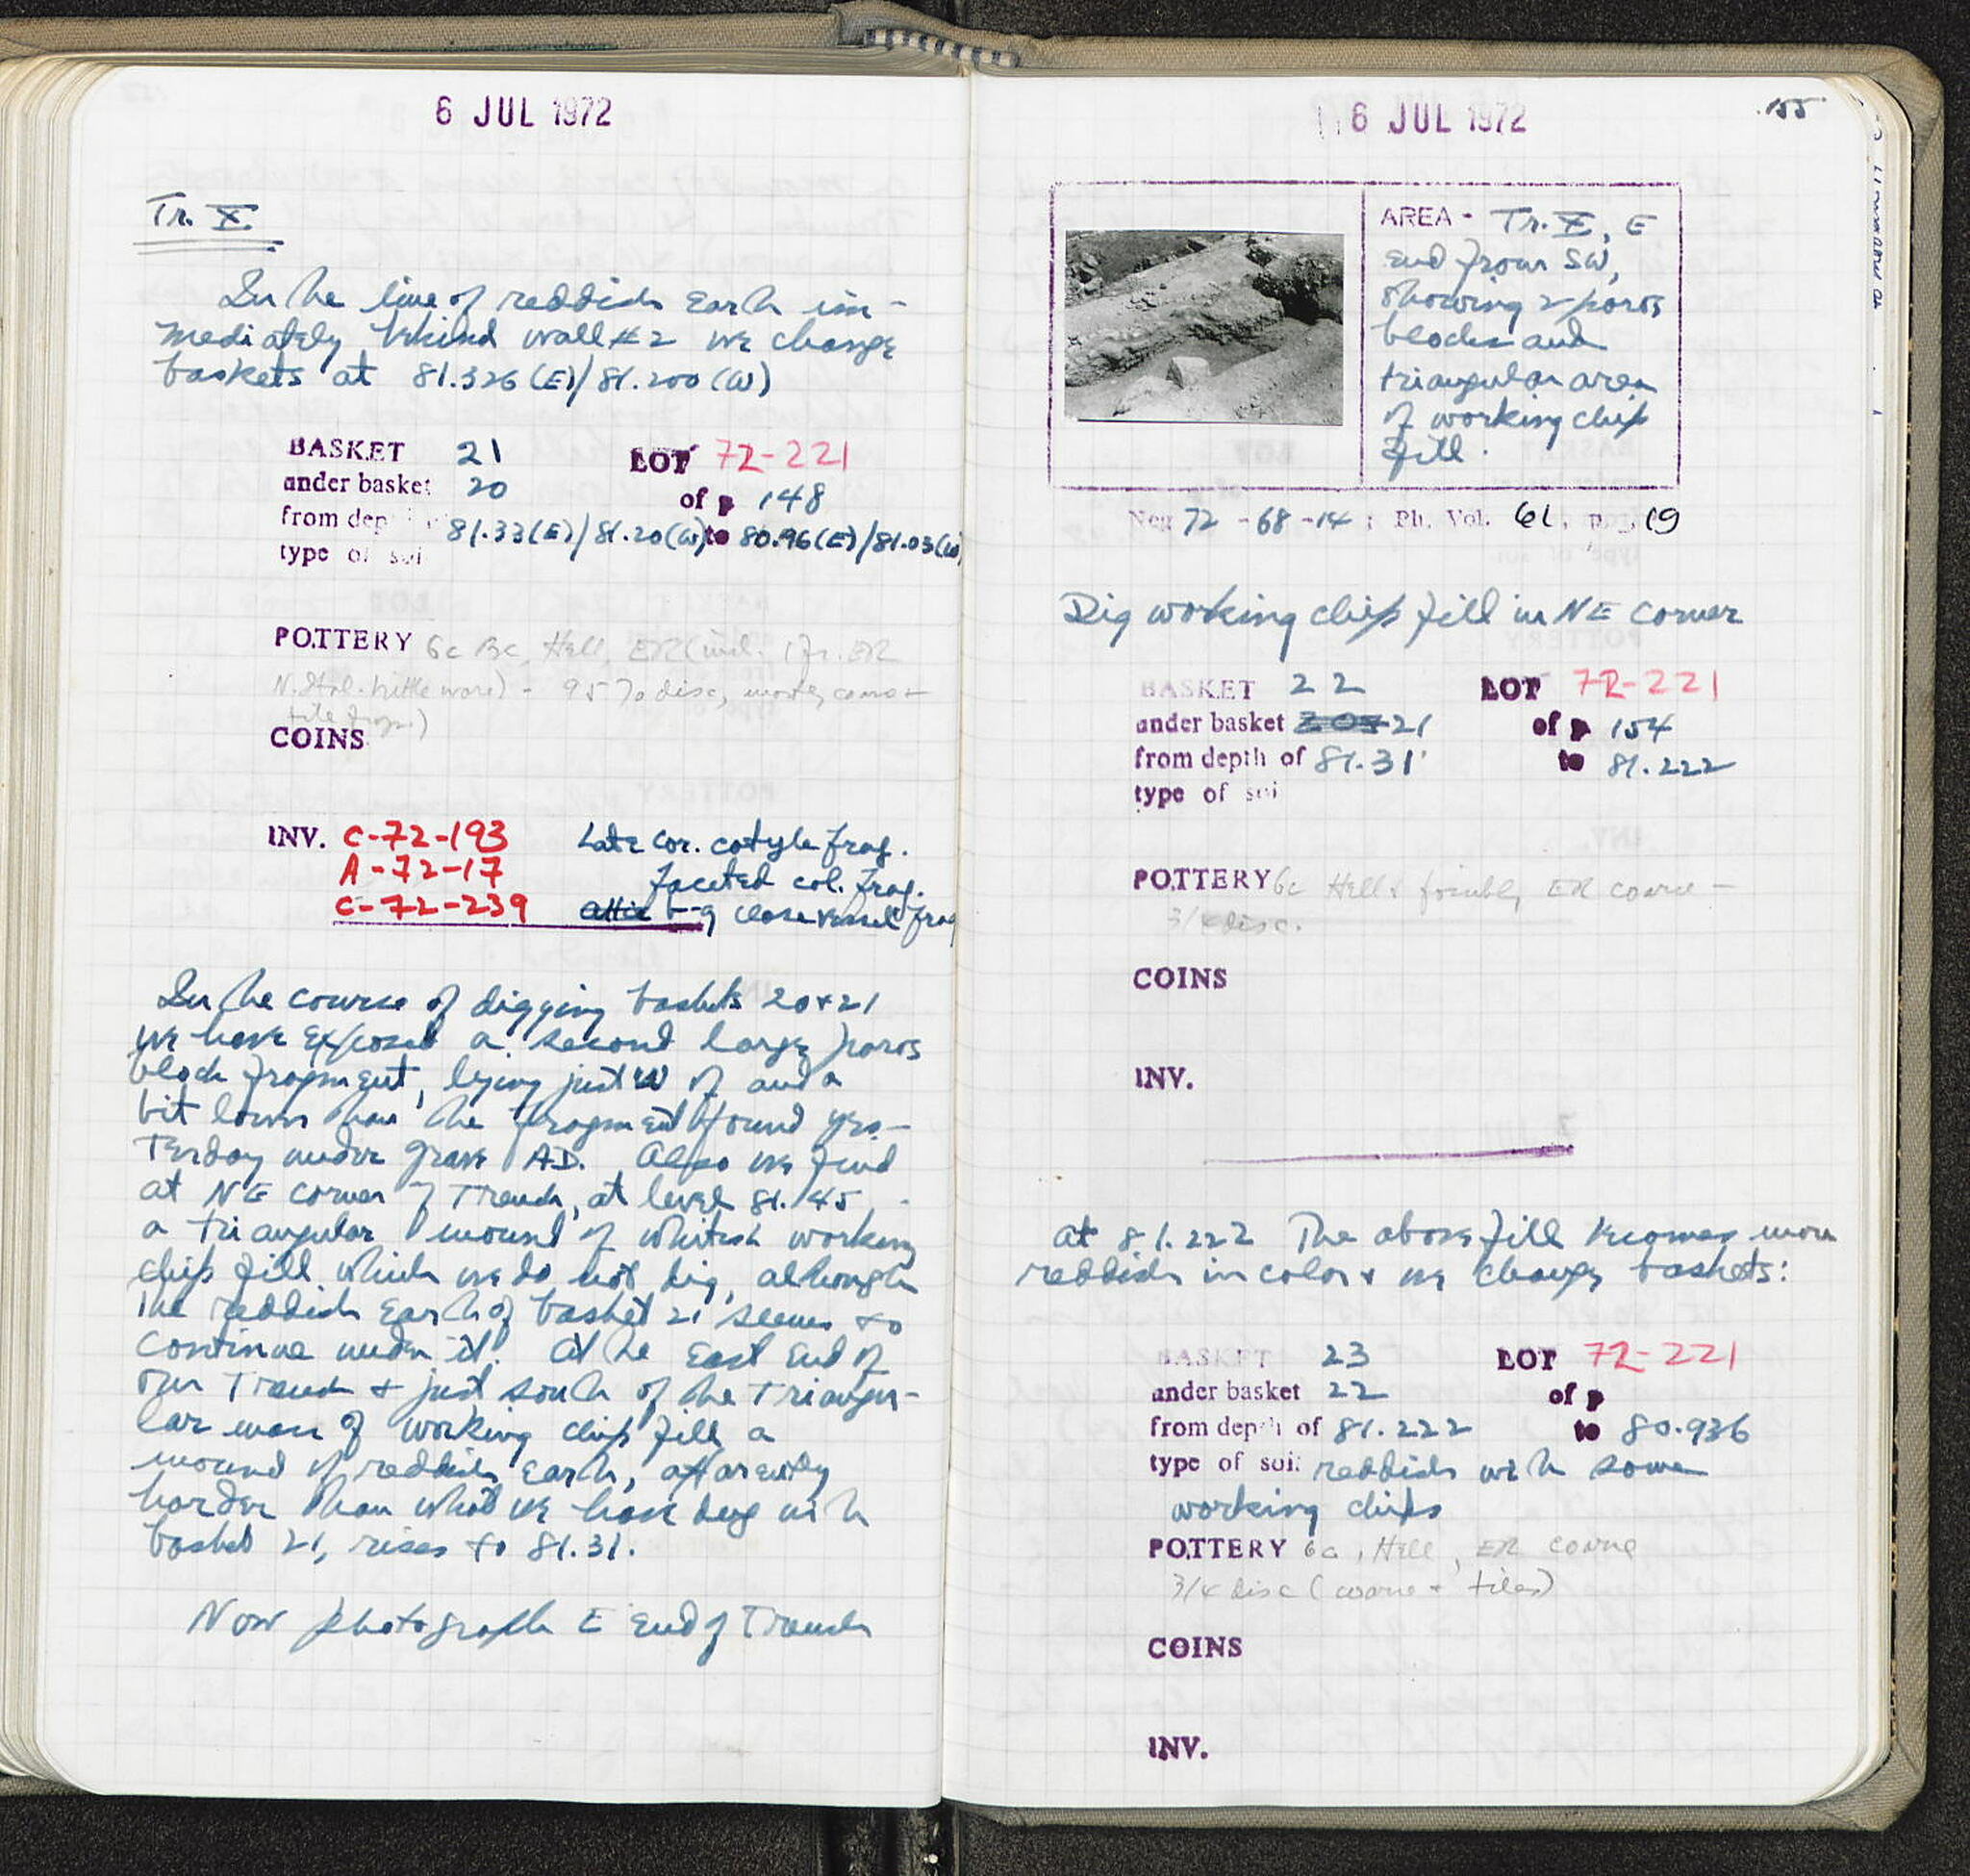 6 JUL 1972
Tr. X
In the line of reddish earth im-
mediately behind wall #2 we change
baskets at 81.326 (E)/81.200 (W)
BASKET 21 LOT 72-221
under basket 20 of p 148
from dep 81.33(E)/81.20(W) to 80.96(E)/81.03(W)
type of soi
POTTERY 6c BC, Hell, ER (incl. 1 fr. ER
N. Ital. brittle ware) - 95% disc, mostly coarse +
tile frags.)
COINS
INV. C-72-193 Late Cor. cotyle frag.
A-72-17 faceted col. frag.
C-72-239 Attic b-g close vessel frag
In the course of digging baskets 20+21
we have exposed a second large poros
block fragment, lying just W of and a
bit lower than the fragment found yes-
terday under grave AD. Also we find
at NE corner of trench, at level 81.145
a triangular mound of whitish working
chip fill which we do not dig, although
the reddish earth of basket 21 seems to
continue under it. At the east end of
our trench + just south of the triangu-
lar mass of working chip fill a
mound of reddish earth, apparently
harder than what we have dug with
basket 21, rises to 81.31.
Now photograph E end of Trench
6 JUL 1972
155
AREA - Tr. X, E
end from SW,
showing 2 poros
blocks and
triangular area
of working chip
fill.
Neg 72-68-14; Ph. Vol. 61, p. 19
Dig working chip fill in NE corner
BASKET 22 LOT 72-221
under basket 21 of p 154
from depth of 81.31 to 81.222
type of soi
POTTERY 6c Hell + possibly ER coarse -
3/4 disc.
COINS
INV.
at 81.222 The above fill becomes more
reddish in color + we change baskets:
BASKET 23 LOT 72-221
under basket 22 of p
from depth of 81.222 to 80.936
type of soil reddish with some
working chips
POTTERY 6c, Hell, ER coarse
3/4 disc (coarse + tiles)
COINS
INV.